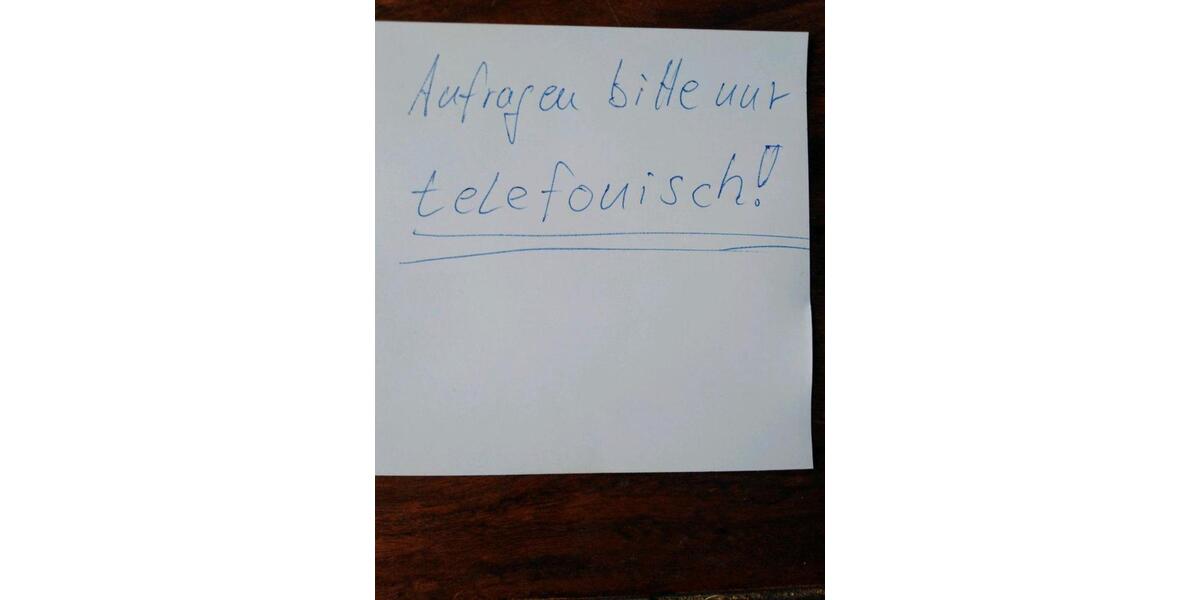 Anfragen bitte nur
telefonisch!